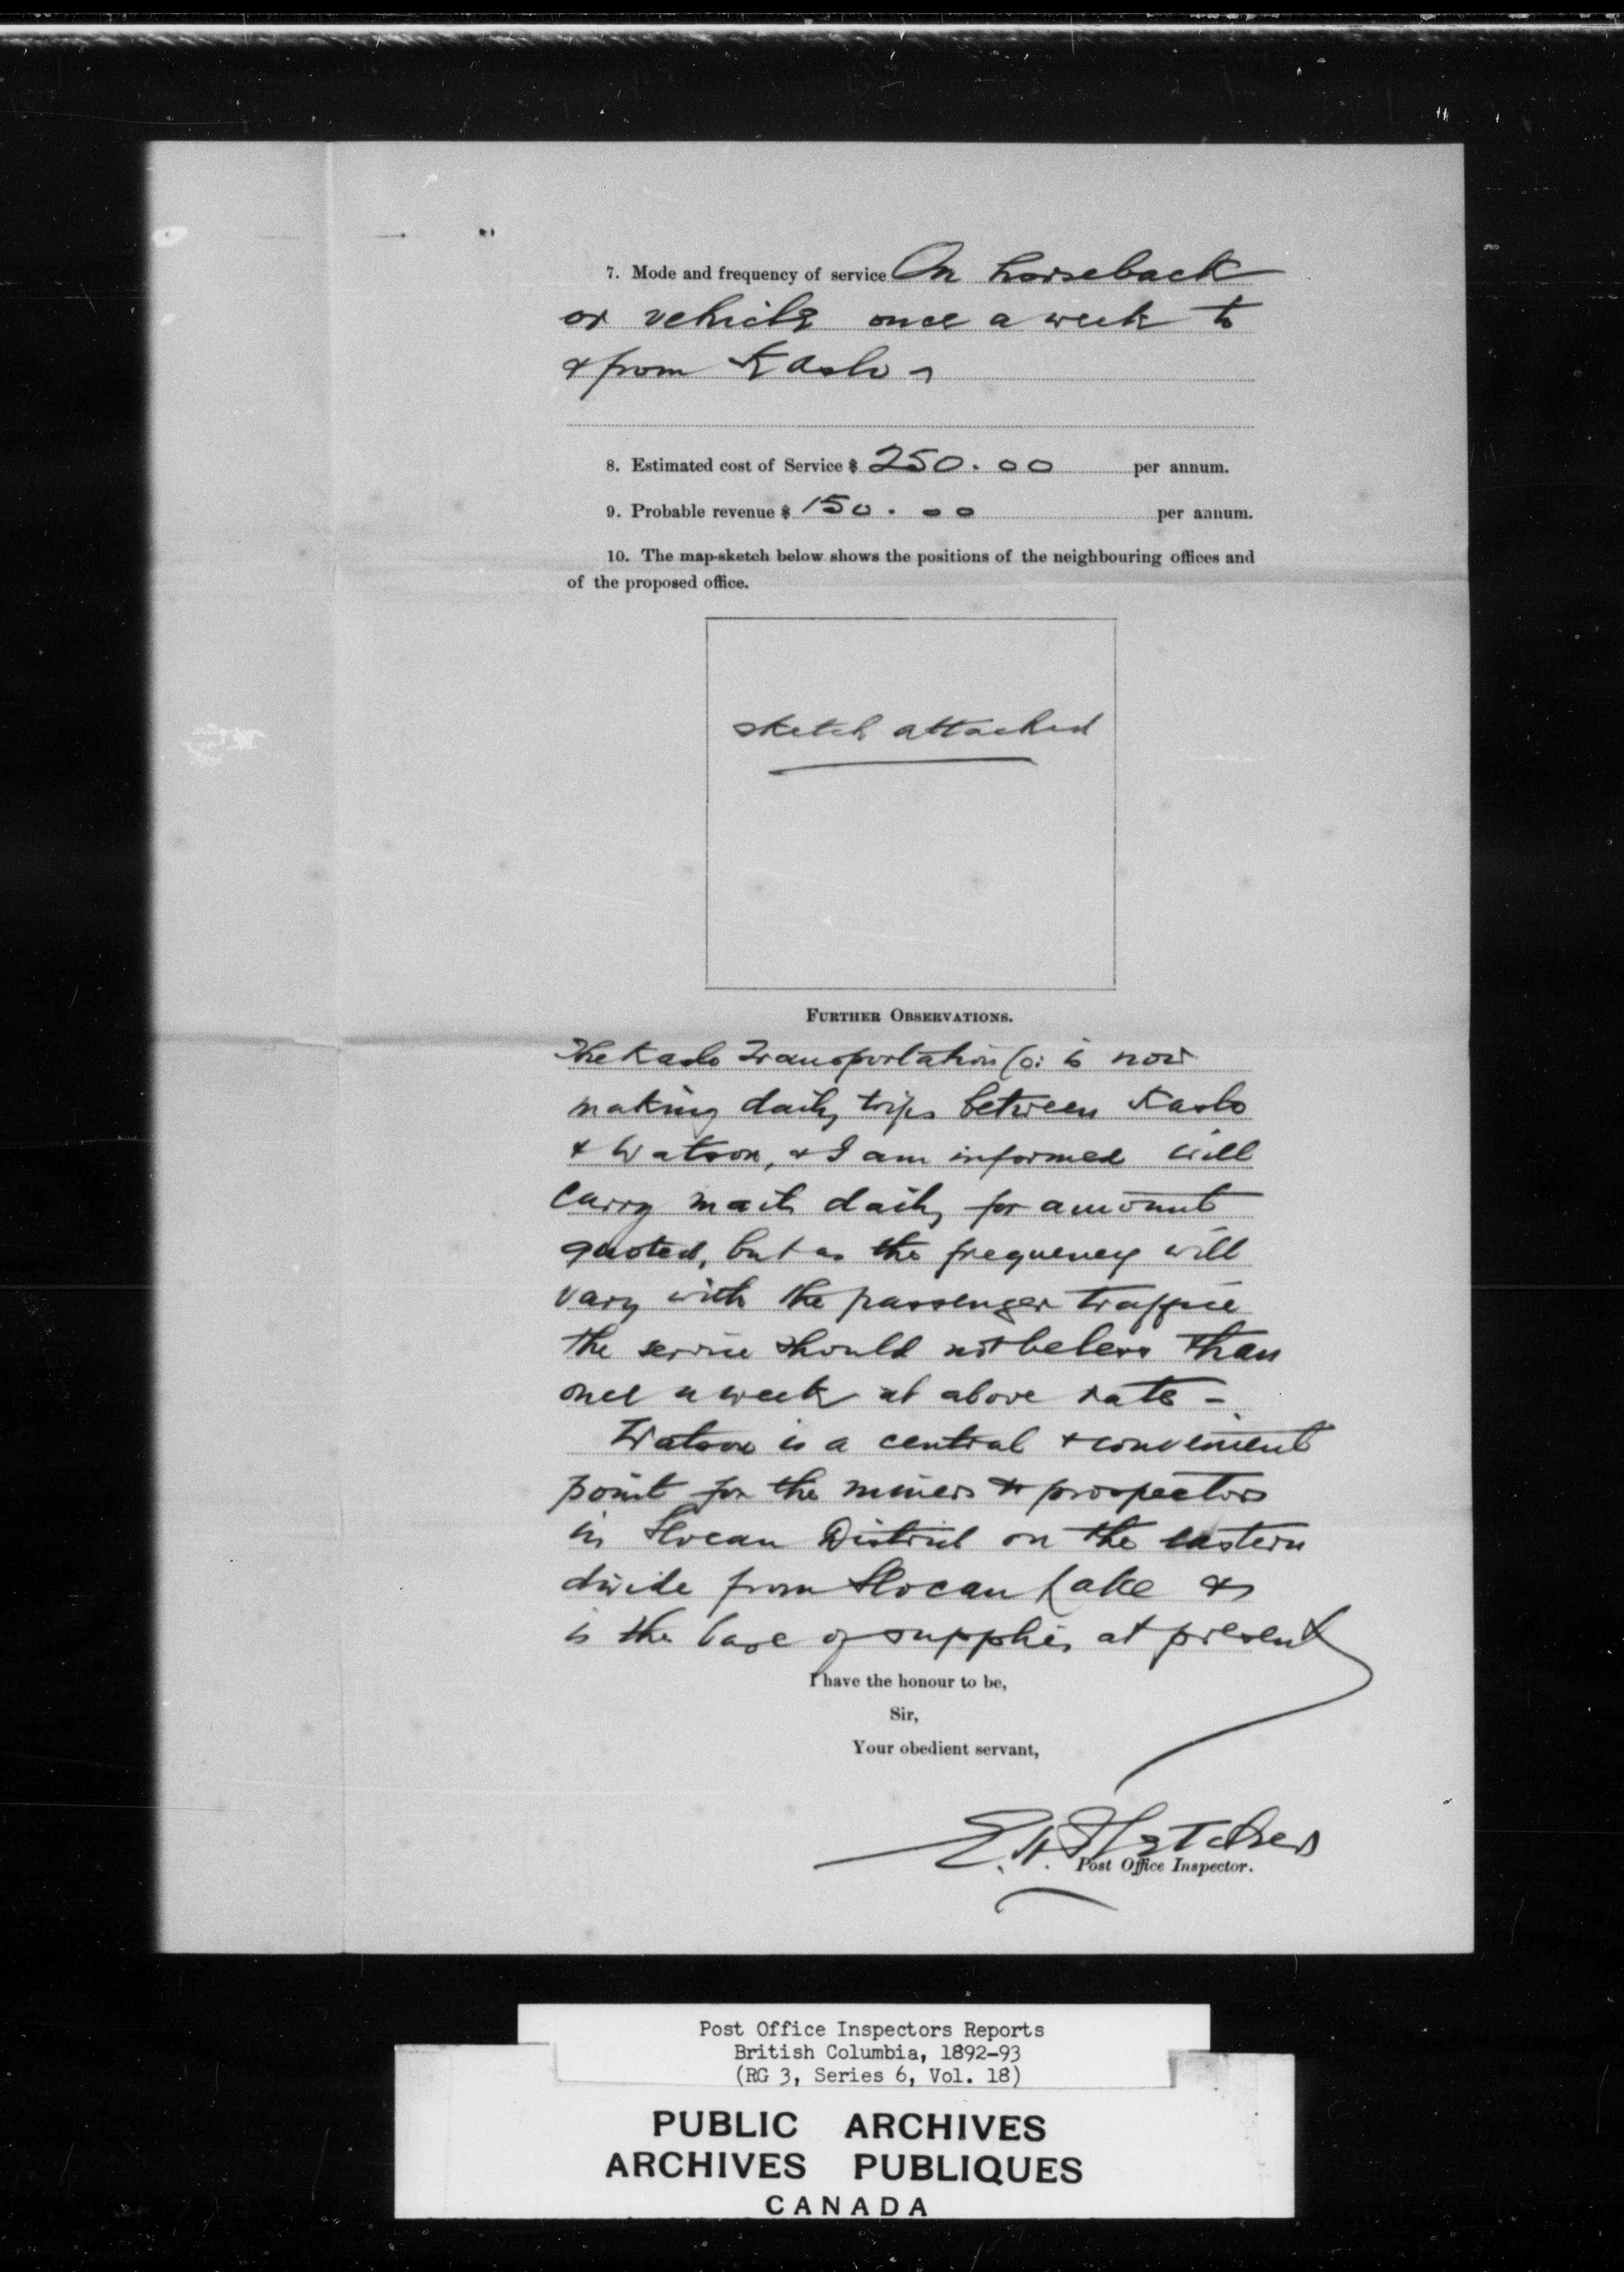 7. Mode and frequency of service On horseback
or vehicle once a week to
& from Kaslo -
8. Estimated cost of Service $ 250.00 per annum.
9. Probable revenue $ 150.00 per annum.
10. The map-sketch below shows the positions of the neighbouring offices and
of the proposed office.
sketch attached
FURTHER OBSERVATIONS.
The Kaslo Transportation Co: is now
making daily trips between Kaslo
& Watson, & I am informed will
carry mails daily for amount
quoted, but as the frequency will
vary with the passenger traffic
the service should not be less than
once a week at above rate -
Watson is a central & convenient
point for the miners & prospectors
in Slocan District on the eastern
divide from Slocan Lake &
is the base of supplies at present
I have the honour to be,
Sir,
Your obedient servant,
E.H. Fletcher
Post Office Inspector.
Post Office Inspectors Reports
British Columbia, 1892-93
(RG 3, Series 6, Vol. 18)
PUBLIC ARCHIVES
ARCHIVES PUBLIQUES
CANADA